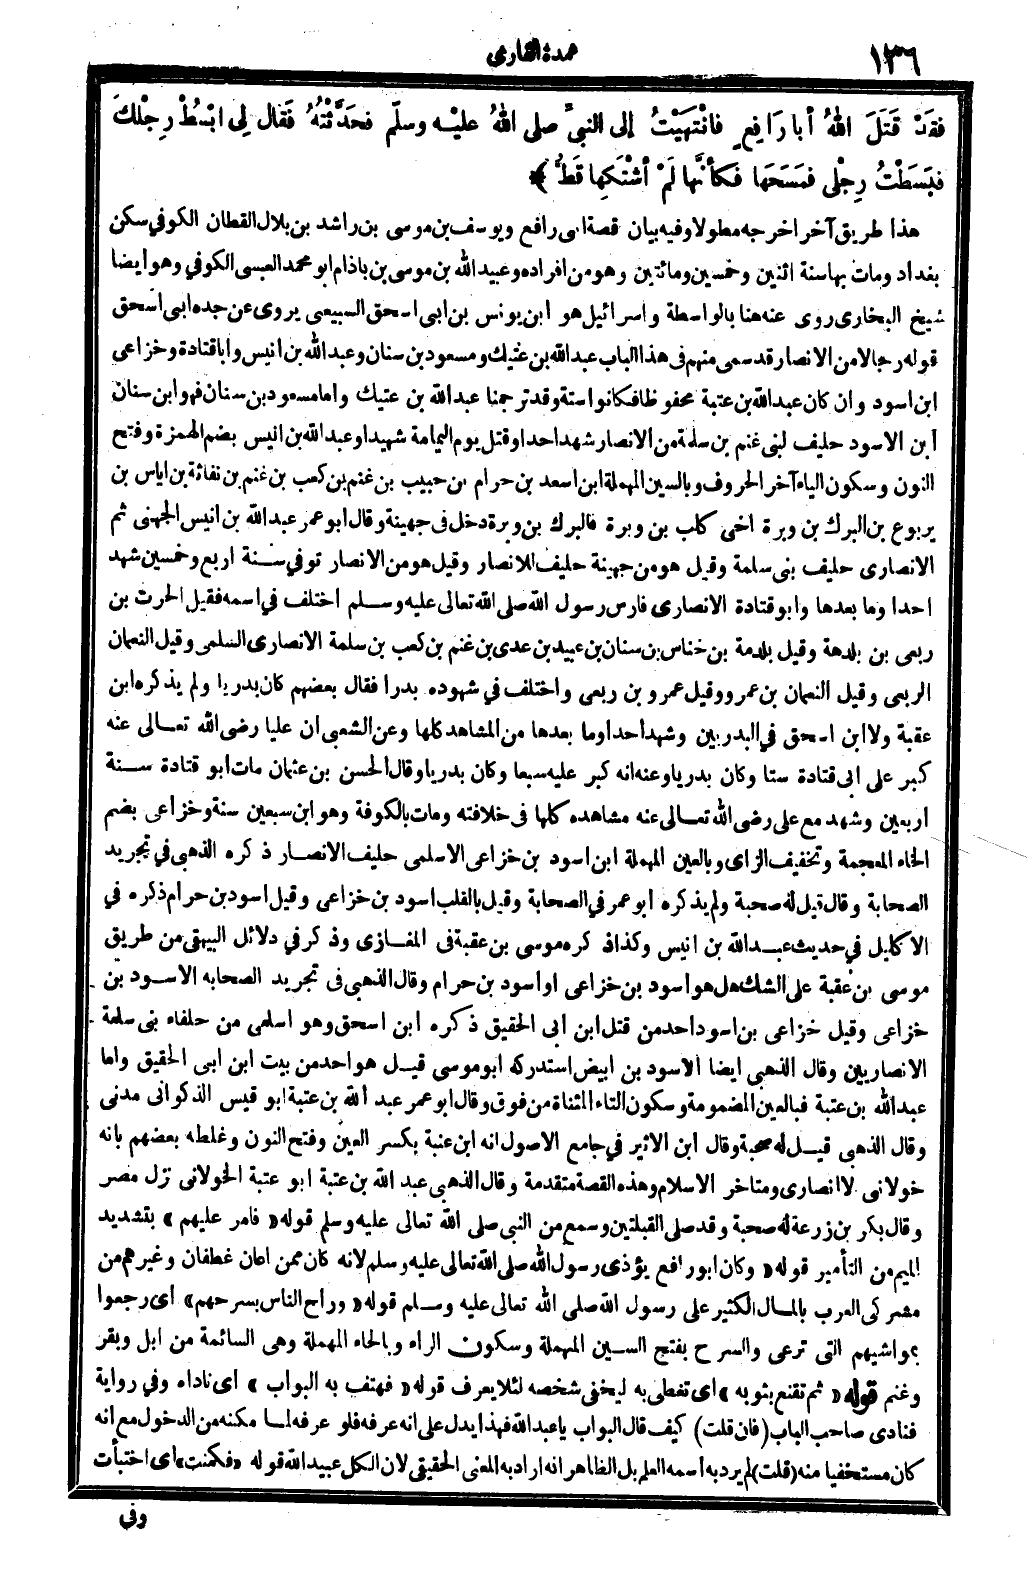 ١٣٦
عمدة القارى
فقد قَتَلَ اللهُ أبا رَافِعٍ فانْتَهَيْتُ إلى النبيِّ صلى اللهُ عليْه وسلّم فحَدَّثْتُهُ فَقال لِى ابْسُطْ رِجْلَكَ
فبَسَطْتُ رِجْلى فمَسَحَها فكأنَّها لَمْ أشْتَكِها قَطُّ ﴾
هذا طريق آخر اخرجه مطولا وفيه بيان قصة ابى رافع ويوسف بن موسى بن راشد بن بلال القطان الكوفي سكن
بغداد ومات بها سنة اثنين وخمسين ومائتين وهو من افراده وعبيد الله بن موسى بن باذام ابو محمد العبسى الكوفي وهو ايضا
شيخ البخارى روى عنه هنا بالواسطة واسرائيل هو ابن يونس بن ابى اسحق السبيعى يروى عن جده ابى اسحق
قوله رجالا من الانصار قد سمى منهم فى هذا الباب عبدالله بن عتيك ومسعود بن سنان وعبدالله بن انيس وابا قتادة وخزاعى
ابن اسود وان كان عبدالله بن عتبة محفوظا فكانوا ستة وقد ترجمنا عبدالله بن عتيك واما مسعود بن سنان فهو ابن سنان
ابن الاسود حليف لبنى غنم بن سلمة من الانصار شهد احدا وقتل يوم اليمامة شهيدا وعبدالله بن انيس بضم الهمزة وفتح
النون وسكون الياء آخر الحروف وبالسين المهملة ابن اسعد بن حرام بن حبيب بن غنم بن كعب بن غنم بن نفاثة بن اياس بن
يربوع بن البرك بن وبرة اخى كلب بن وبرة فالبرك بن وبرة دخل فى جهينة وقال ابو عمر عبدالله بن انيس الجهنى ثم
الانصارى حليف بنى سلمة وقيل هو من جهينة حليف للانصار وقيل هو من الانصار توفي سنة اربع وخمسين شهد
احدا وما بعدها وابو قتادة الانصارى فارس رسول الله صلى الله تعالى عليه وسلم اختلف في اسمه فقيل الحرث بن
ربعى بن بلدهة وقيل بلدمة بن خناس بن سنان بن عبيد بن عدى بن غنم بن كعب بن سلمة الانصارى السلمى وقيل النعمان
الربعى وقيل النعمان بن عمرو وقيل عمرو بن ربعى واختلف في شهوده بدرا فقال بعضهم كان بدريا ولم يذكره ابن
عقبة ولا ابن اسحق في البدريين وشهد احدا وما بعدها من المشاهد كلها وعن الشعبى ان عليا رضى الله تعالى عنه
كبر على ابى قتادة ستا وكان بدريا وعنه انه كبر عليه سبعا وكان بدريا وقال الحسن بن عثمان مات ابو قتادة سنة
اربعين وشهد مع على رضى الله تعالى عنه مشاهده كلها فى خلافته ومات بالكوفة وهو ابن سبعين سنة وخزاعى بضم
الخاء المعجمة وتخفيف الزاى وبالعين المهملة ابن اسود بن خزاعى الاسلمى حليف الانصار ذكره الذهبى في تجريد
الصحابة وقال قيل له صحبة ولم يذكره ابو عمر في الصحابة وقيل بالقلب اسود بن خزاعى وقيل اسود بن حرام ذكره في
الاكليل في حديث عبدالله بن انيس وكذا ذكره موسى بن عقبة فى المغازى وذكر في دلائل البيهقى من طريق
موسى بن عقبة على الشك هل هو اسود بن خزاعى او اسود بن حرام وقال الذهبى فى تجريد الصحابه الاسود بن
خزاعى وقيل خزاعى بن اسود احد من قتل ابن ابى الحقيق ذكره ابن اسحق وهو اسلمى من حلفاء بنى سلمة
الانصاريين وقال الذهبى ايضا الاسود بن ابيض استدركه ابو موسى قيل هو احد من بيت ابن ابى الحقيق واما
عبدالله بن عتبة فبالعين المضمومة وسكون التاء المثناة من فوق وقال ابو عمر عبد الله بن عتبة ابو قيس الذكوانى مدنى
وقال الذهبى قيل له صحبة وقال ابن الاثير في جامع الاصول انه ابن عنبة بكسر العين وفتح النون وغلطه بعضهم بانه
خولانى لا انصارى ومتاخر الاسلام وهذه القصة متقدمة وقال الذهبى عبد الله بن عتبة ابو عتبة الخولانى نزل مصر
وقال بكر بن زرعة له صحبة وقد صلى القبلتين وسمع من النبى صلى الله تعالى عليه وسلم قوله « فامر عليهم » بتشديد
الميم من التأمير قوله « وكان ابو رافع يؤذى رسول الله صلى الله تعالى عليه وسلم لانه كان ممن اعان غطفان وغيرهم من
مشركى العرب بالمال الكثير على رسول الله صلى الله تعالى عليه وسلم قوله « وراح الناس بسرحهم » اى رجعوا
بمواشيهم التى ترعى والسرح بفتح السين المهملة وسكون الراء وبالحاء المهملة وهى السائمة من ابل وبقر
وغنم قوله « ثم تقنع بثوبه » اى تغطى به ليخفى شخصه لئلا يعرف قوله « فهتف به البواب » اى ناداه وفي رواية
فنادى صاحب الباب (فان قلت) كيف قال البواب يا عبدالله فهذا يدل على انه عرفه فلو عرفه لما مكنه من الدخول مع انه
كان مستخفيا منه (قلت) لم يرد به اسمه العلم بل الظاهر انه اراد به المعنى الحقيقى لان الكل عبيد الله قوله « فكمنت » اى اختبأت
وفى